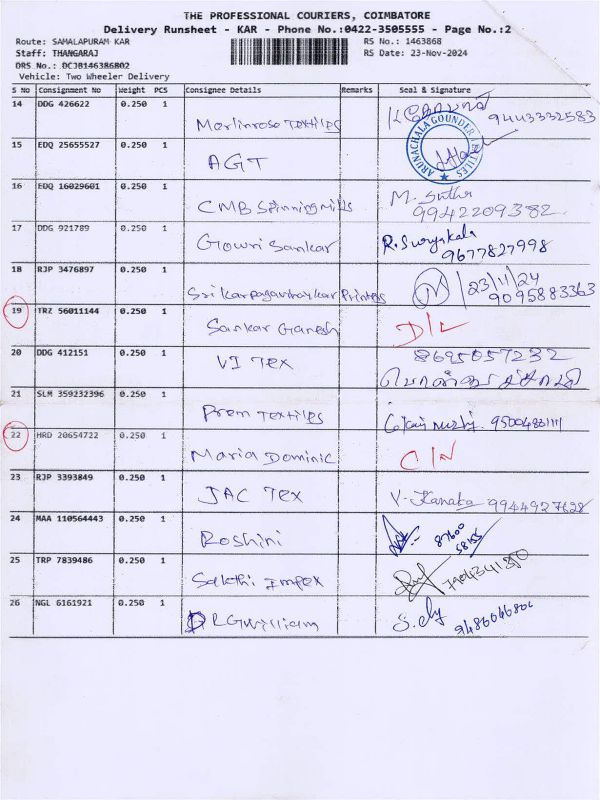 THE PROFESSIONAL COURIERS, COIMBATORE
Delivery Runsheet - KAR - Phone No.:0422-3505555 - Page No.:2
Route: SAMALAPURAM KAR
RS No.: 1463868
Staff: THANGARAJ
RS Date: 23-Nov-2024
DRS No.: DCJB146386802
Vehicle: Two Wheeler Delivery
S No Consignment No Weight PCS Consignee Details Remarks Seal & Signature
14 DDG 426622 0.250 1 Merlinrose Textiles 9443332583
ARUNACHALA GOUNDER TEXTILES
15 EDQ 25655527 0.250 1 AGT
16 EDQ 16029601 0.250 1 CMB Spinning Mills M. Sutha 9942209382
17 DDG 921789 0.250 1 Gowri Sankar R. Suryakala 9677827998
18 RJP 3476897 0.250 1 Printers 23/11/24 9095883363
19 TRZ 56011144 0.250 1 Sankar Ganesh D/L
20 DDG 412151 0.250 1 VI Tex 8695057232
21 SLM 359232396 0.250 1 Prem Textiles 95004831111
22 HRD 20654722 0.250 1 Maria Dominic C/N
23 RJP 3393849 0.250 1 JAC Tex V. Kanaka 9944927628
24 MAA 110564443 0.250 1 Roshini 87600 58155
25 TRP 7839486 0.250 1 Sakthi Impex 7904341250
26 NGL 6161921 0.250 1 RGwilliam 9486066806